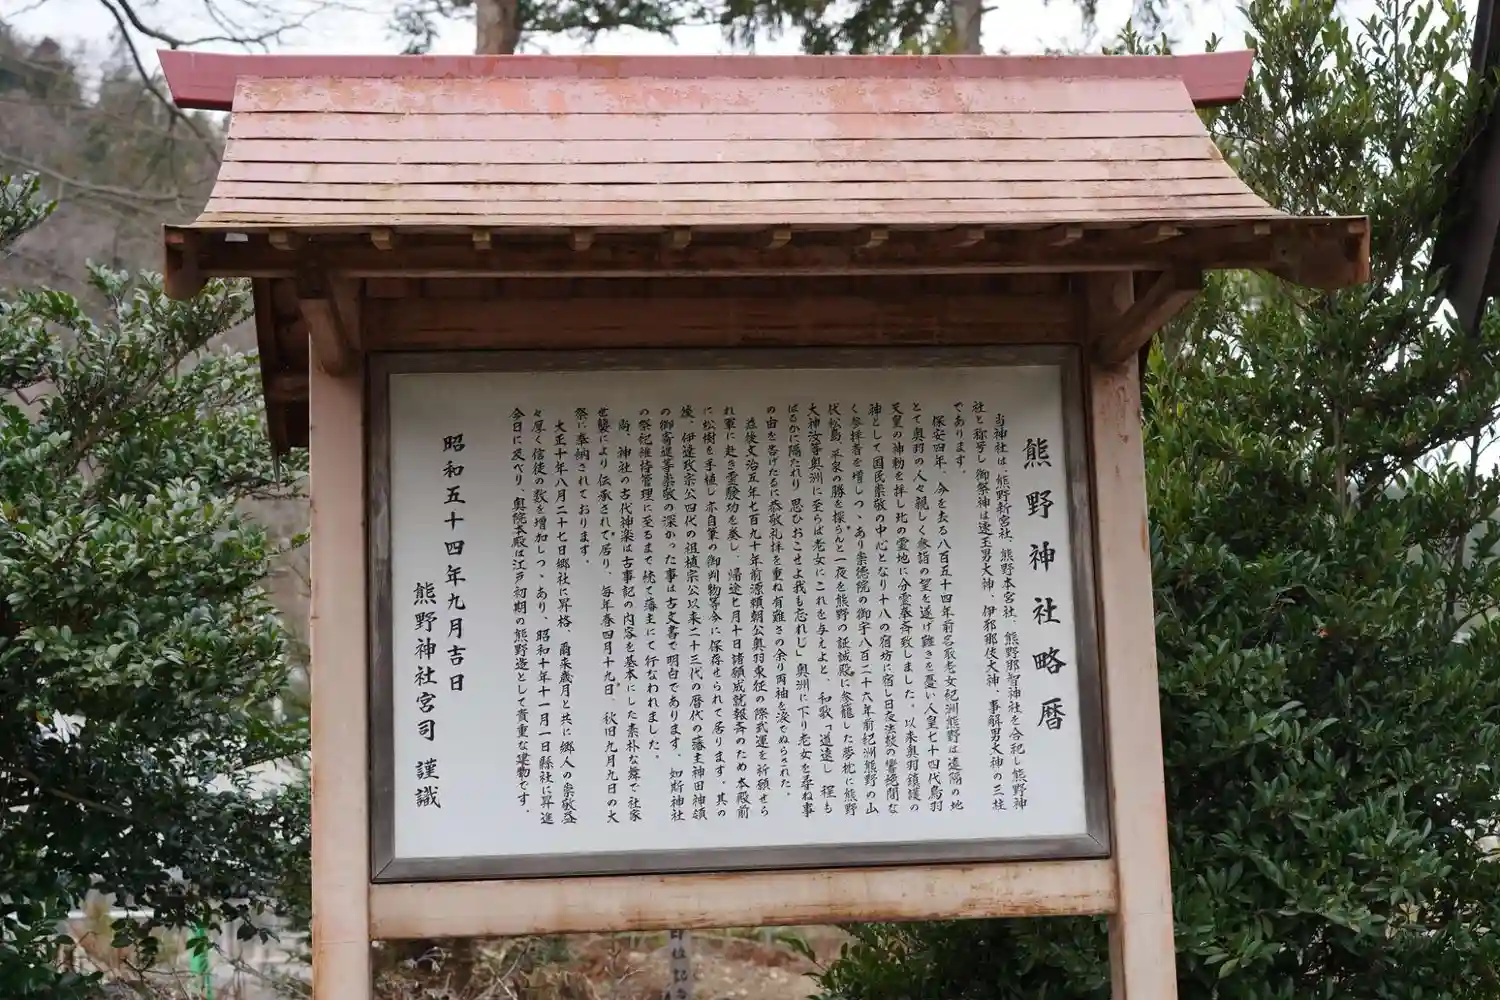 熊野神社略暦
当神社は、熊野新宮社、熊野本宮社、熊野那智神社を合祀し熊野神
社と称号し、御祭神は速玉男大神、伊邪那伎大神、事解男大神の三柱
であります。
保安四年、今を去る八百五十四年前名取老女紀洲熊野は遠隔の地
とて奥羽の人々親しく参詣の望を遂げ難きを憂い人皇七十四代鳥羽
天皇の神勅を拝し此の霊地に分霊奉斉致しました。以来奥羽鎮護の
神として国民崇敬の中心となり十八の宿坊に宿し日夜法鼓の響絶間な
く参拝者を増しつゝあり崇徳院の御宇八百二十六年前紀洲熊野の山
伏松島、平泉の勝を探らんと一夜を熊野の証誠殿に参籠した夢枕に熊野
大神汝等奥洲に至らば老女にこれを与えよと、和歌「道遠し程も
はるかに隔たれり思ひおこせよ我も忘れじ」奥洲に下り老女を尋ね事
の由を告げたるに恭敬礼拝を重ね有難さの余り両袖を涙でぬらされた。
其後文治五年七百九十年前源頼朝公奥羽東征の際武運を祈願せら
れ軍に赴き霊験功を奏し、帰途七月十日諸願成就報斉のため本殿前
に松樹を手植し亦自筆の御判物等今に保存せられて居ります。其の
後、伊達政宗公四代の祖植宗公以来二十三代の暦代の藩主神田神領
の御寄進等崇敬の深かった事は古文書で明白であります。如斯神社
の祭祀維持管理に至るまで統て藩主にて行なわれました。
尚、神社の古代神楽は古事記の内容を基本にした素朴な舞で社家
世襲により伝承されて居り、毎年春四月十九日、秋旧九月九日の大
祭に奉納されております。
大正十年八月二十七日郷社に昇格、爾来歳月と共に郷人の崇敬益
々厚く信徒の数を増加しつゝあり、昭和十年十一月一日縣社に昇進
今日に及べり、奥院本殿は江戸初期の熊野造として貴重な建物です。
昭和五十四年九月吉日
熊野神社宮司 謹識